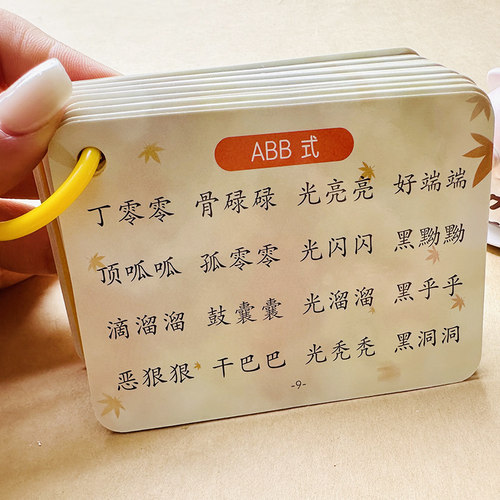 ABB 式
丁零零 骨碌碌 光亮亮 好端端
顶呱呱 孤零零 光闪闪 黑黝黝
滴溜溜 鼓囊囊 光溜溜 黑乎乎
恶狠狠 干巴巴 光秃秃 黑洞洞
-9-